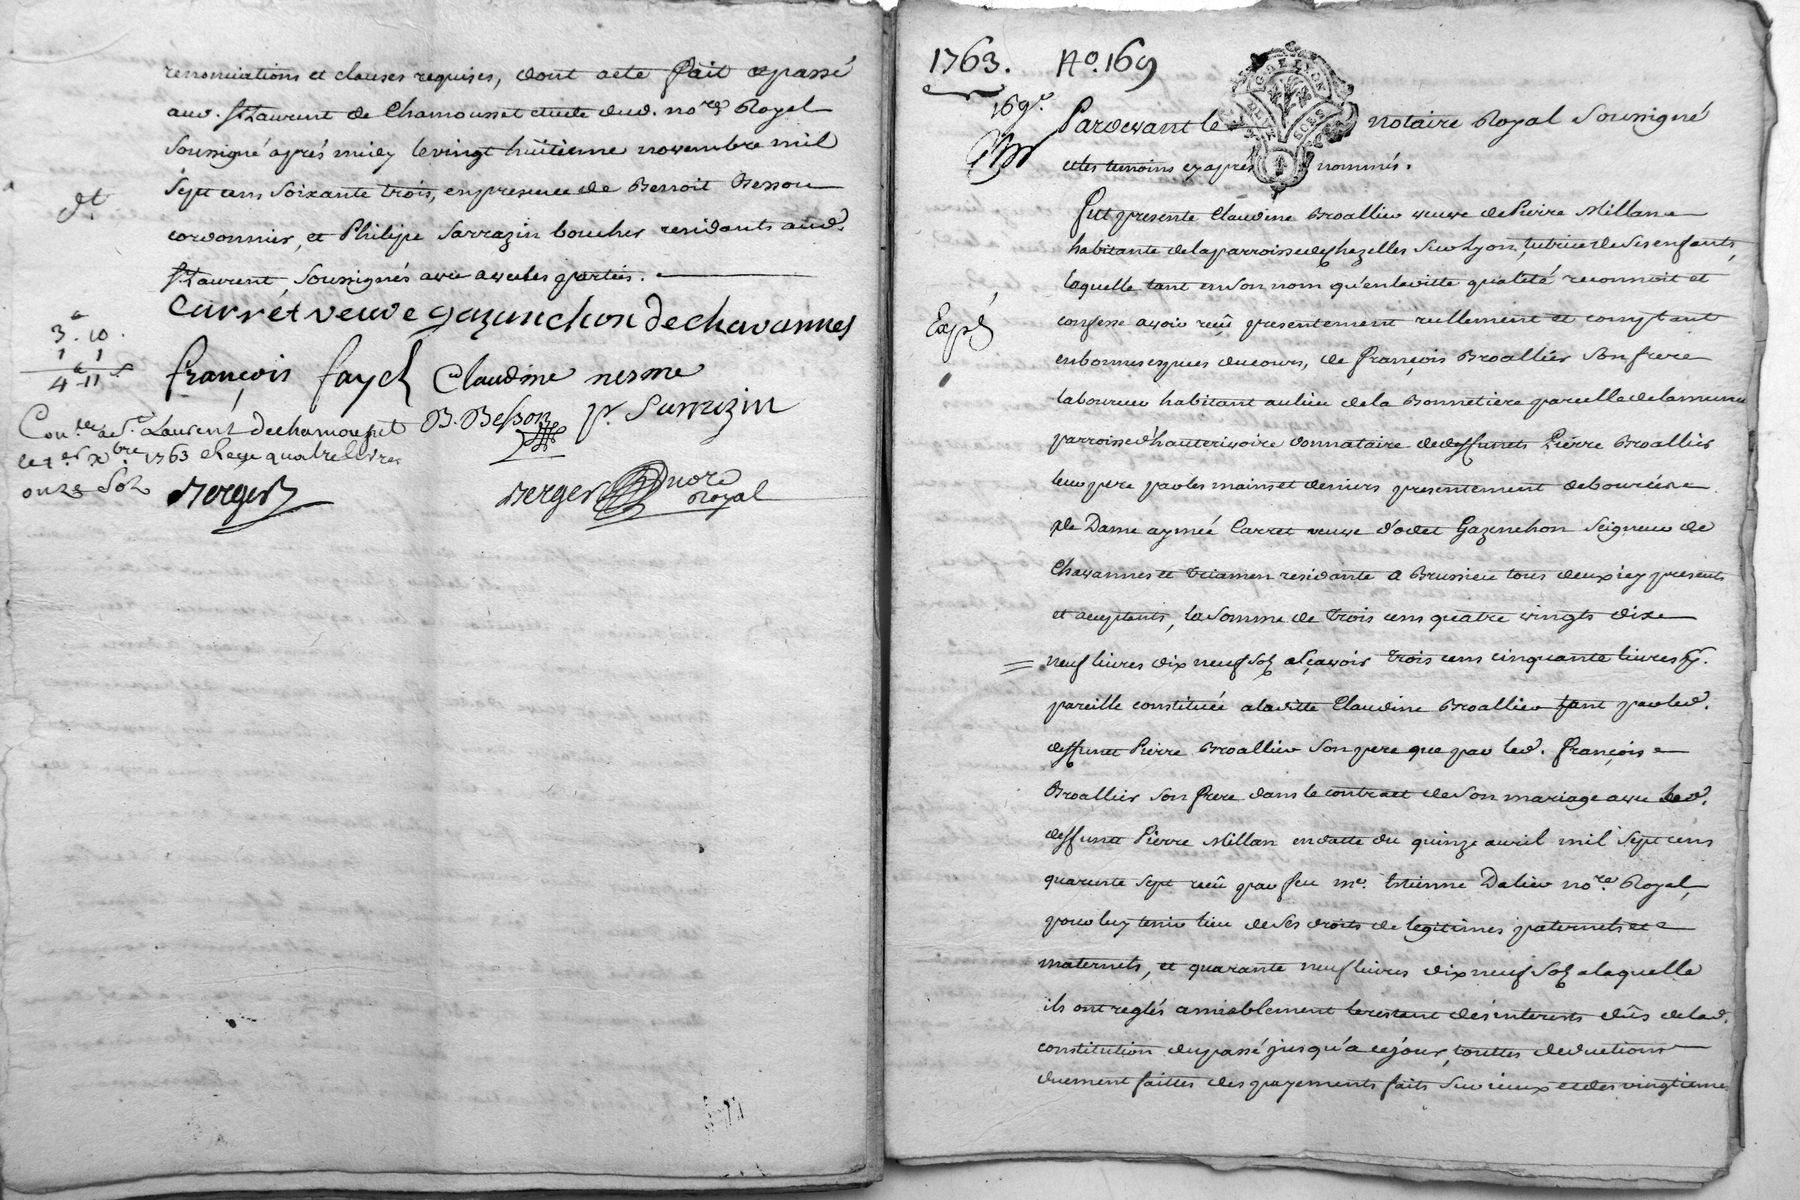 renonciations et clauses requises, dont acte fait et passé
aud. St Laurent de Chamousset etude dud. nore Royal
soussigné après midy le vingt huitieme novembre mil
sept cens soixante trois, en presence de Benoit Besson
cordonnier, et Philipe Sarrazin boucher residants aud.
St Laurent, soussignés avec avec les parties.
Carret veuve gazanchon de chavannes
françois fayel Claudine nesme
B. Besson p. Sarrazin
3. 10.
1 1
4 - 11 s
Conlé a St Laurent de chamousset
le 1er xbre 1763 Reçu quatre livres
onze sols
Berger
Berger nore
Royal
1763. No. 169
169e
Pardevant le notaire Royal soussigné
et les temoins cy après nommés.
GEN DE LYON
DEUX SOLS
Fut presente Claudine Broallier veuve de Pierre Millan
habitante de la parroisse de Chazelles sur Lyon, tutrice de ses enfants,
laquelle tant en son nom qu'en laditte qualeté reconnoit et
Expé
confesse avoir reçû presentement reellement et comptant
en bonnes especes du cours, de François Broallier son frere
laboureur habitant au lieu de la Bonnetiere parcelle de la meme
parroisse d'hauterivoire donnataire de deffunct Pierre Broallier
leur pere par les mains et deniers presentement deboursés
de Dame aymée Carret veuve d'odet Gazanchon Seigneur de
Chavannes et Triamen residante a Brussieu tous deux icy presents
et acceptants, la somme de trois cens quatre vingts dix
neuf livres dix neuf sols a sçavoir trois cens cinquante livres
pareille constituée a laditte Claudine Broallier tant par led.
deffunct Pierre Broallier son pere que par led. François
Broallier son frere dans le contract de son mariage avec led.
deffunct Pierre Millan en datte du quinze avril mil sept cens
quarante sept reçû par feu me. Etienne Dalier nore. Royal,
pour luy tenir lieu de ses droits de legitimes paternels et
maternels, et quarante neuf livres dix neuf sols a laquelle
ils ont reglés amiablement le restant des interests dûs de lad.
constitution du passé jusqu'a ce jour, touttes deductions
duement faittes des payements faits sur iceux et des vingtieme